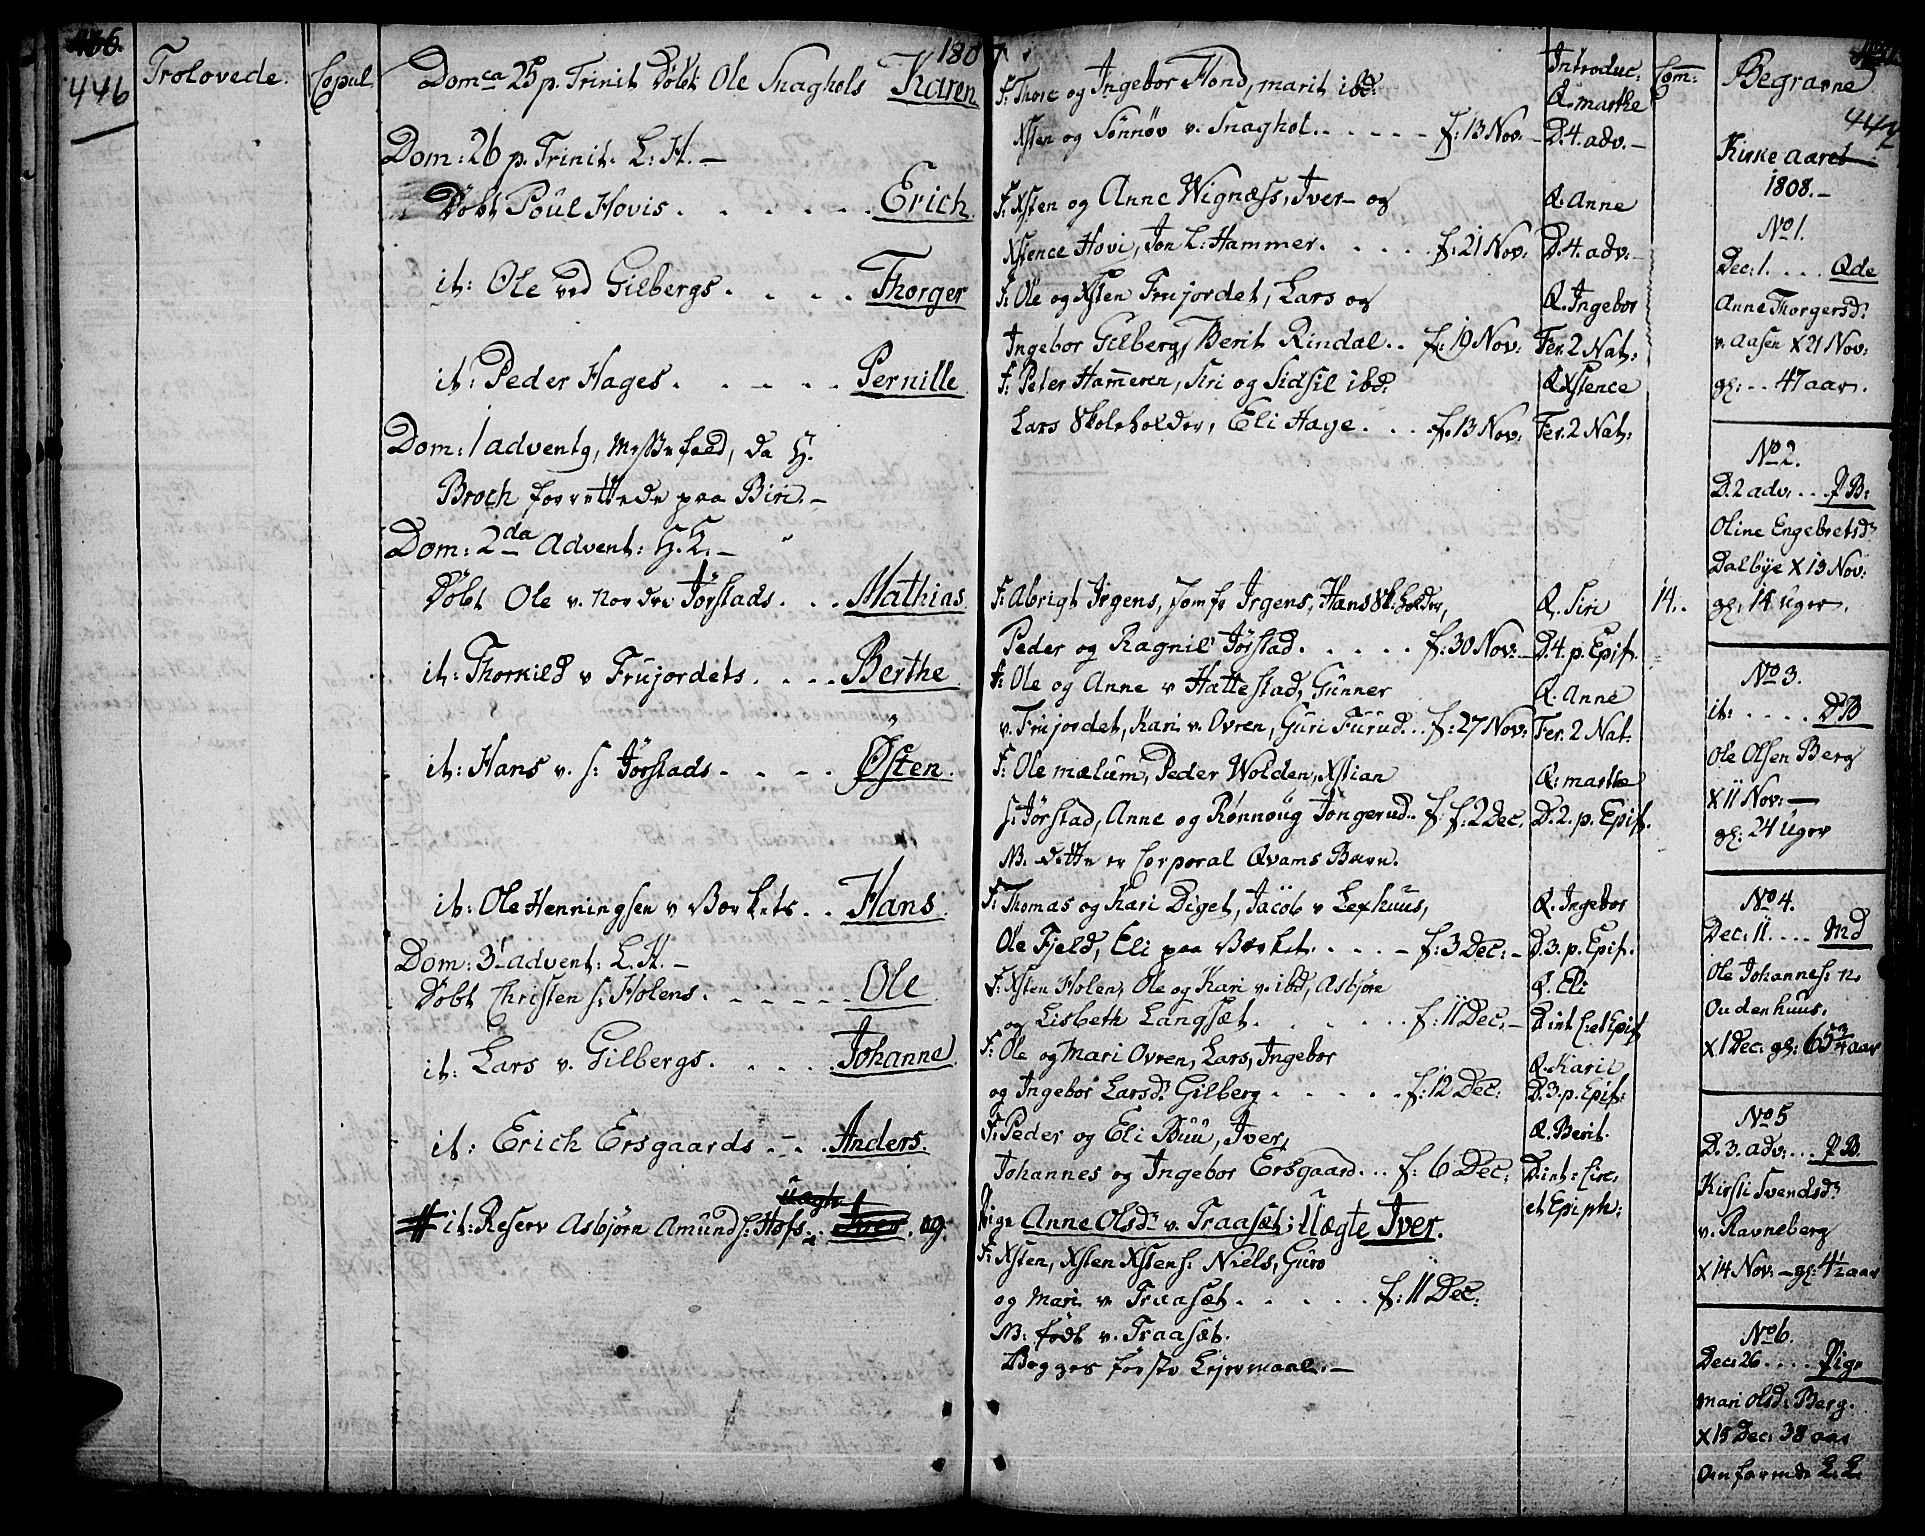 446
Trolovede.
Copul
1807.
Dom.ca 25 p. Trinit Döbt Ole Snaghols Karen
Dom: 26 p. Trinit. L: H. -
Döbt Poul Hovis . . . . . . Erich.
it: Ole ved Gilbergs . . . . Thorger
it: Peder Hages . . . . . Pernille
Dom: 1 advent, Messefald, da H.
Broch forrettede paa Biri. -
Dom: 2da Advent: H. K. -
Döbt Ole v. nordre Jörstads . . . Mathias.
it: Thorkild v Frujordets . . . . Berthe.
it: Hans v. s: Jörstads . . . . Østen.
it: Ole Henningsen v Børkets . . Hans.
Dom: 3 advent: L. H. -
Döbt Christen s: Holens . . . . . . Ole
it: Lars v. Gilbergs . . . . . Johanne.
it: Erich Ersgaards . . . Anders.
it: Reserv Asbjörn Amunds: Hofs: uægte Iver. og
F: Thore og Ingebor Flond, marit ibd:
Xsten og Sönnöv v. Snaghol . . . . . f: 13 Nov. -
F: Xsten og Anne Wignæss, Iver og
Xstence Hovi, Jon L: Hammer . . . . f: 21 Nov:
F: Ole og Xsten Frujordet, Lars og
Ingebor Gilberg, Berit Rindal . . f: 19 Nov:
F: Peter Hammeren, Siri og Sidsil ibd:
Lars Skoleholder, Eli Hage . . . f. 13 Nov:
F: Abrigt Irgens, Jomfr Irgens, Hans Sk:holder,
Peder og Ragnil Jörstad . . . . . f: 30 Nov: -
F: Ole og Anne v Hattestad, Gunner
v. Frujordet, Kari v. Ovren, Guri Furud . . f: 27 Nov:
F: Ole mælum, Peder Wolden, Xstian
s: Jörstad, Anne og Rönnoug Jongerud . . f: 2 Dec.
NB. dette er Corporal Qvams Barn.
F: Thomas og Kari Diget, Jacob v Lexhuus,
Ole Fjeld, Eli paa Børket . . . . - f: 3 Dec: -
F: Xsten Holen, Ole og Kari v. ibd, Asbjörn
og Lisbeth Langsæt . . . . . . f: 11 Dec: -
F: Ole og Mari Ovren, Lars, Ingebor
og Ingebor Larsd: Gilberg . . . . . f: 12 Dec:
F: Peder og Eli Buu, Iver,
Johannes og Ingebor Ersgaard . . . f: 6 Dec:
Pige Anne Olsd: v. Traasæt; Uægte Iver.
F: Xsten, Xsten Xstens: Niels, Guro
og Mari v Traasæt . . . . . f: 11 Dec:
NB: födt v. Traasæt.
Begges förste Lejermaal. -
Introduc:
Q. marthe
D. 4. adv. -
Q. Anne
D. 4. adv: -
Q. Ingebor
Fer. 2 Nat:
Q Xstence
Fer. 2 Nat:
Q. Siri
D. 4. p. Epif.
Q. Anne
Fer. 2 Nat.
Q: marthe
D. 2. p. Epif.
Q. Ingebor
D. 3. p. Epif.
Q. Eli
D int C. et Epif
Q. Kari
D. 3. p. Epif:
Q. Berit.
D. int: Circ.
et Epiph:
Com:
14. .
Begravne
447
Kirke aaret
1808. -
No 1.
Dec: 1 . . . . Qde
Anne Thorgersd:
v. Aasen X 21 Nov:
gl: - . 47 aar.
No 2.
D. 2 adv: . . . PB:
Oline Engebretsd:
Dalbye X 13 Nov:
gl: 14 Uger.
No 3.
it: . . . . DB
Ole Olsen Berg
X 11 Nov: -
gl: 24 Uger
No 4.
Dec: 11 . . . . Md
Ole Johannes: n.
Oudenhuus.
X 1 Dec: gl: 65 3/4 aar
No 5
D. 3. adv: . . . PB.
Kirsti Svendsd:
v. Ravneberg
X 14 Nov: - gl: 4 1/2 aar
No 6.
Dec: 26 . . . . Pige
Mari Olsd: Berg.
X 15 Dec: 38 aar